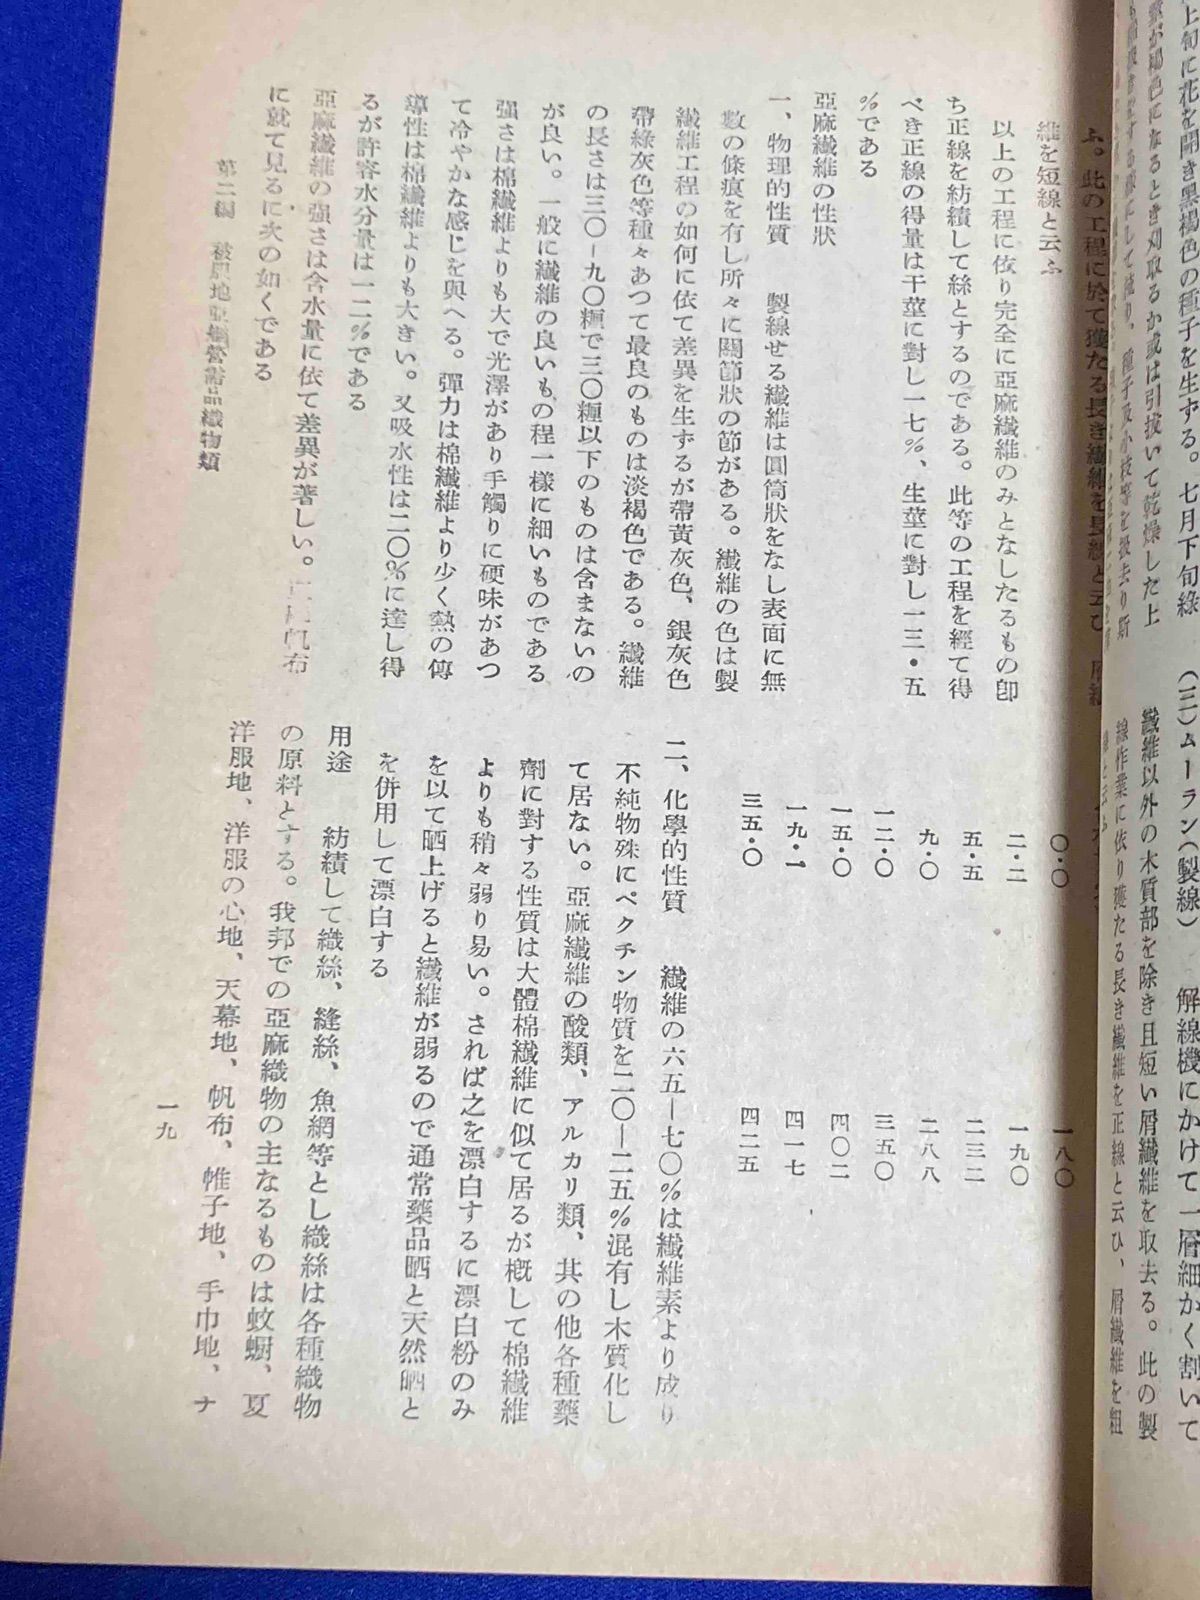 上旬に花を開き黑褐色の種子を生ずる。七月下旬綠
ふ。此の工程に於て獲たる長き纖維を長線と云ひ、
維を短線と云ふ
以上の工程に依り完全に亞麻纖維のみとなしたるもの卽
ち正線を紡績して絲とするのである。此等の工程を經て得
べき正線の得量は干莖に對し一七%、生莖に對し一三・五
%である
亞麻纖維の性狀
一、物理的性質　製線せる纖維は圓筒狀をなし表面に無
數の條痕を有し所々に關節狀の節がある。纖維の色は製
纖維工程の如何に依て差異を生ずるが帶黃灰色、銀灰色
帶綠灰色等種々あつて最良のものは淡褐色である。纖維
の長さは三〇―九〇糎で三〇糎以下のものは含まないの
が良い。一般に纖維の良いもの程一樣に細いものである
强さは棉纖維よりも大で光澤があり手觸りに硬味があつ
て冷やかな感じを與へる。彈力は棉纖維より少く熱の傳
導性は棉纖維よりも大きい。又吸水性は二〇%に達し得
るが許容水分量は一二%である
亞麻纖維の强さは含水量に依て差異が著しい。帆布
に就て見るに次の如くである
第二編　被服地亞麻營需品織物類
(三)ムーラン(製線)　解線機にかけて一層細かく割いて
纖維以外の木質部を除き且短い屑纖維を取去る。此の製
線作業に依り獲たる長き纖維を正線と云ひ、屑纖維を粗
〇・〇　一八〇
二・二　一九〇
五・五　二三二
九・〇　二八八
一二・〇　三五〇
一五・〇　四〇二
一九・一　四一七
三五・〇　四二五
二、化學的性質　纖維の六五―七〇%は纖維素より成り
不純物殊にペクチン物質を二〇―二五%混有し木質化し
て居ない。亞麻纖維の酸類、アルカリ類、其の他各種藥
劑に對する性質は大體棉纖維に似て居るが槪して棉纖維
よりも稍々弱り易い。されば之を漂白するに漂白粉のみ
を以て晒上げると纖維が弱るので通常藥品晒と天然晒と
を併用して漂白する
用途　紡績して織絲、縫絲、魚網等とし織絲は各種織物
の原料とする。我邦での亞麻織物の主なるものは蚊幮、夏
洋服地、洋服の心地、天幕地、帆布、帷子地、手巾地、ナ
一九